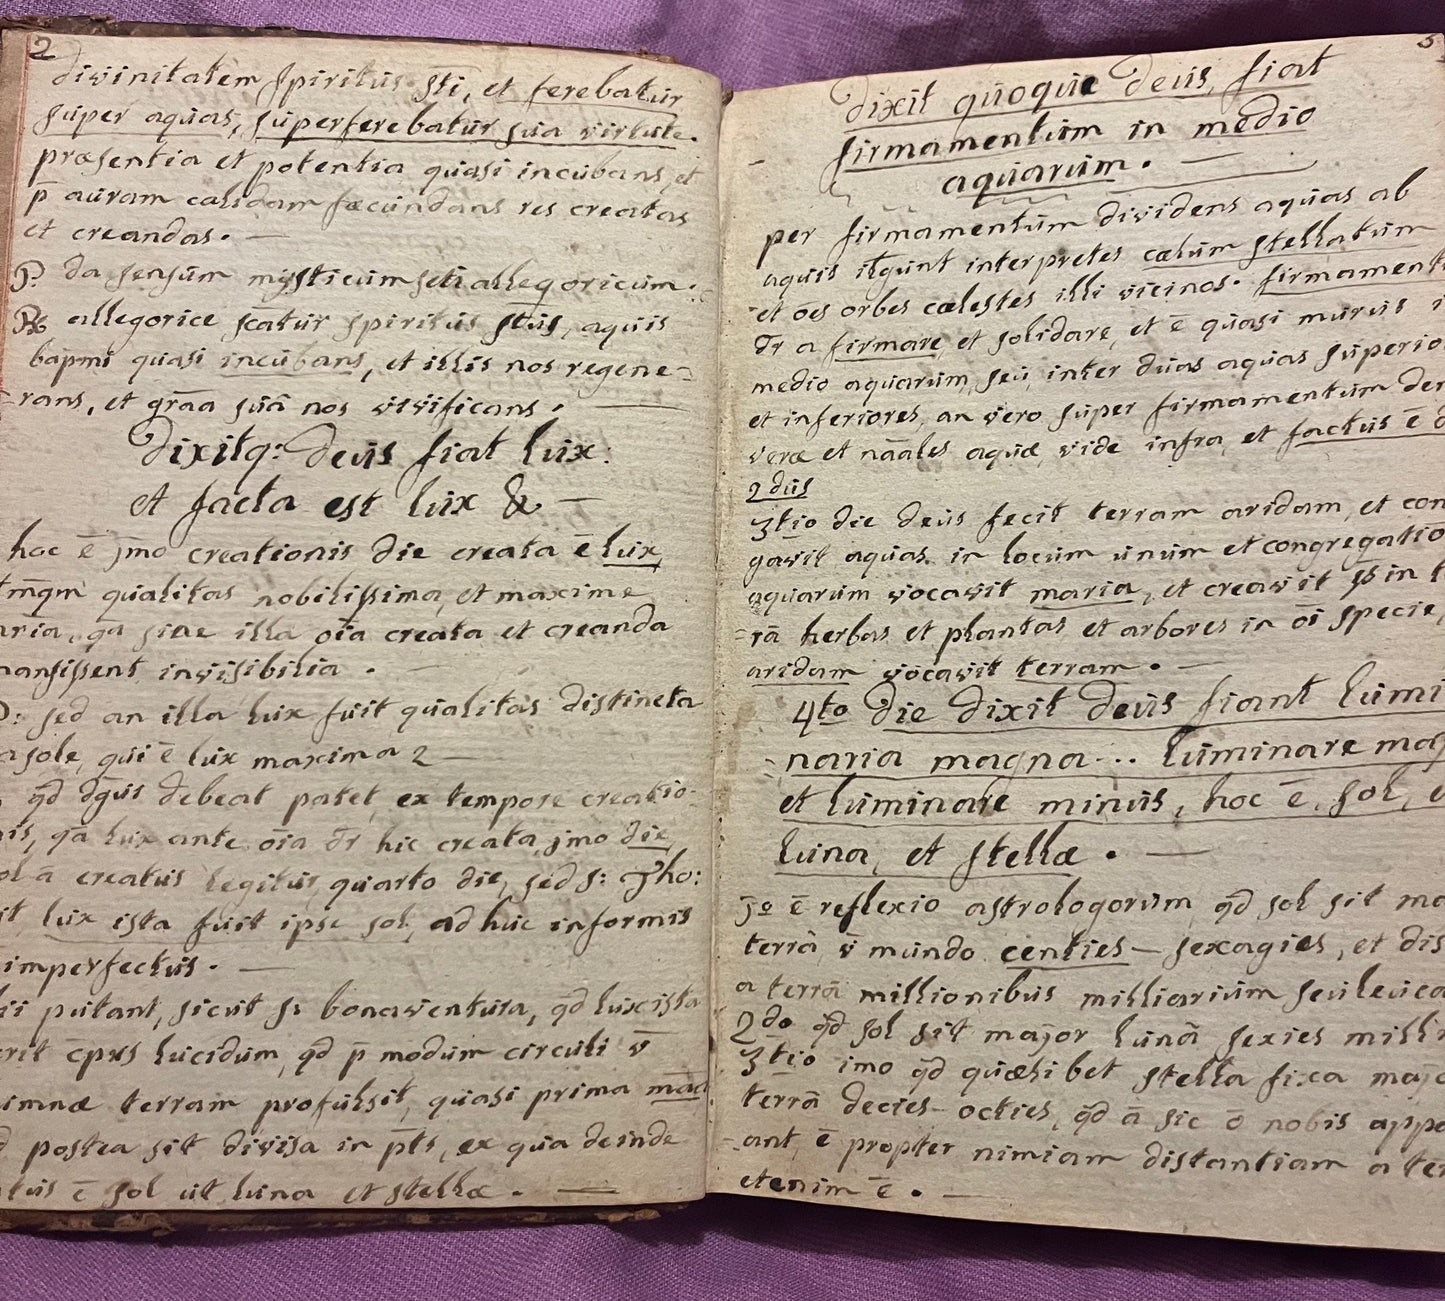 2
divinitatem spiritus sti, et ferebatur
super aquas, superferebatur sua virtute.
præsentia et potentia quasi incubans et
p̄ auram calidam fæcundans res creatas
et creandas. —
P. da sensum mysticum seu allegoricum.
R. allegorice scātur spiritus stus, aquis
bapmi quasi incubans, et illis nos regene=
rans, et grāa suā nos vivificans. —
Dixitq: Deus fiat lux.
et facta est lux & —
hoc ē jmo creationis die creata ē lux,
tmqm qualitas nobilissima, et maxime
aria, qā sine illa oīa creata et creanda
mansissent invisibilia. —
D: sed an illa lux fuit qualitas distincta
a sole, qui ē lux maxima? —
qd dgus debeat patet ex tempore creatio-
nis, qā lux ante oīa dr hic creata, jmo die,
sol ā creatus legitur quarto die, sed s: Tho:
it, lux ista fuit ipse sol, adhuc informis
imperfectus. —
lii putant, sicut s. bonaventura, qd lux ista
erit cpus lucidum, qd p̄ modum circuli v̄
terram profulsit, quasi prima
d postea sit divisa in pts, ex qua deinde
tus ē sol ut luna et stellæ. —
3
Dixit quoque Deus, fiat
firmamentum in medio
aquarum. —
per firmamentum dividens aquas ab
aquis itgunt interpretes cælum stellatum
et oēs orbes cælestes illi vicinos. firmament
dr a firmare, et solidare, et ē quasi murus i
medio aquarum, seu inter duas aquas superio
et inferiores, an vero super firmamentum den
veræ et nāales aquæ, vide infra, et factus ē d
2dus
3tio die deus fecit terram aridam, et con
gavit aquas in locum unum et congregatio
aquarum vocavit maria, et creavit in t
rā herbas et plantas et arbores in oī specie,
aridam vocavit terram. —
4to die dixit Deus fiant lumi
naria magna... luminare maj
et luminare minus, hoc ē, sol, e
luna, et stellæ. —
jo ē reflexio astrologorum, qd sol sit ma
terrā v̄ mundo centies — sexagies, et dis
a terrā millionibus milliarium seu leuca
2do qd sol sit major lunā sexies milli
3tio imo qd quælibet stella fixa majo
terrā decies-octies, qd ā sic ō nobis appa
=ant, ē propter nimiam distantiam a ter
etenim ē. —